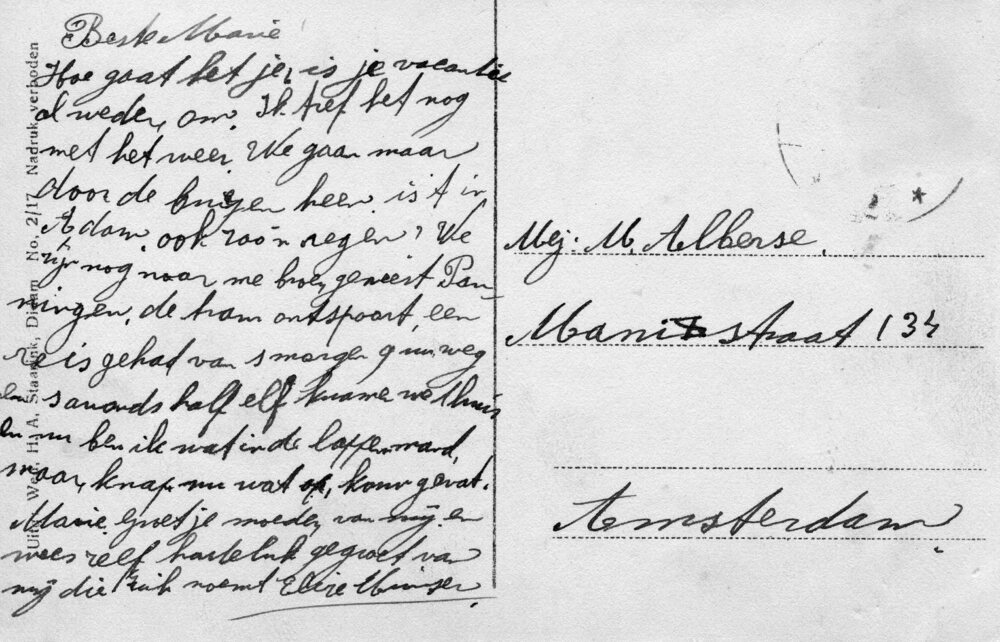 Beste Marie
Hoe gaat het je, is je vacantie
al weder om. Ik tref het nog
met het weer. We gaan maar
door de buijen heen. is t in
A'dam ook zoo'n regen? We
zijn nog naar me broer geweest Pan-
ningen, de tram ontspoort, een
Reis gehad van smorgen 9 uur weg
en savonds half elf kwame we thuis
en nu ben ik wat in de lappenmand,
maar, knap nu wat op, kouw gevat.
Marie groet je moeder van mij en
wees zelf hartelijk gegroet van
mij die zich noemt
Mej: M. Alberse.
straat 134
Amsterdam.
Uitg. Wed. H. A. Staarink, Didam No. 2/17 Nadruk verboden